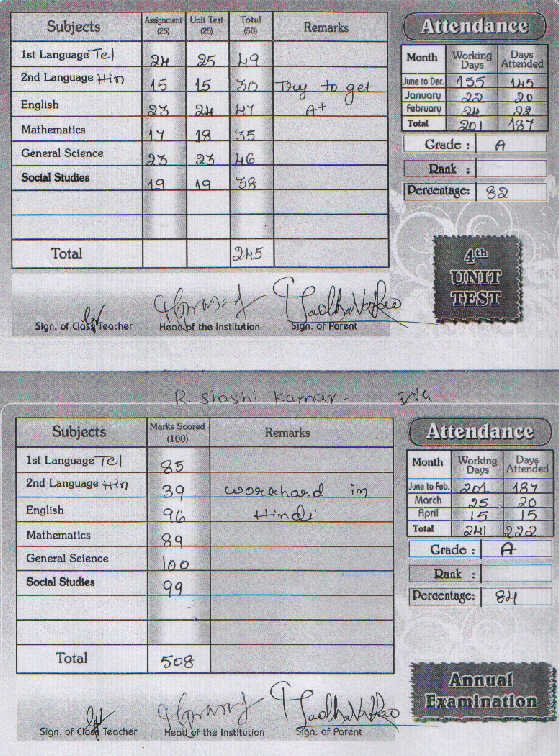 Subjects Assignment (25) Unit Test (25) Total (50) Remarks
1st Language Tel 24 25 49
2nd Language Hin 15 15 30 Try to get
English 23 24 47 A+
Mathematics 17 18 35
General Science 23 23 46
Social Studies 19 19 38
Total 245
Sign. of Class Teacher Head of the Institution Sign. of Parent
Attendance
Month Working Days Days Attended
June to Dec. 155 145
January 22 20
February 24 22
Total 201 187
Grade : A
Rank :
Percentage: 82
4th
UNIT
TEST
R. Sisshi Kumar
Subjects Marks Scored (100) Remarks
1st Language Tel 85
2nd Language Hin 39 workhard in
English 96 Hindi
Mathematics 89
General Science 100
Social Studies 99
Total 508
Sign. of Class Teacher Head of the Institution Sign. of Parent
Attendance
Month Working Days Days Attended
June to Feb. 201 187
March 25 20
April 15 15
Total 241 222
Grade : A
Rank :
Percentage: 84
Annual
Examination